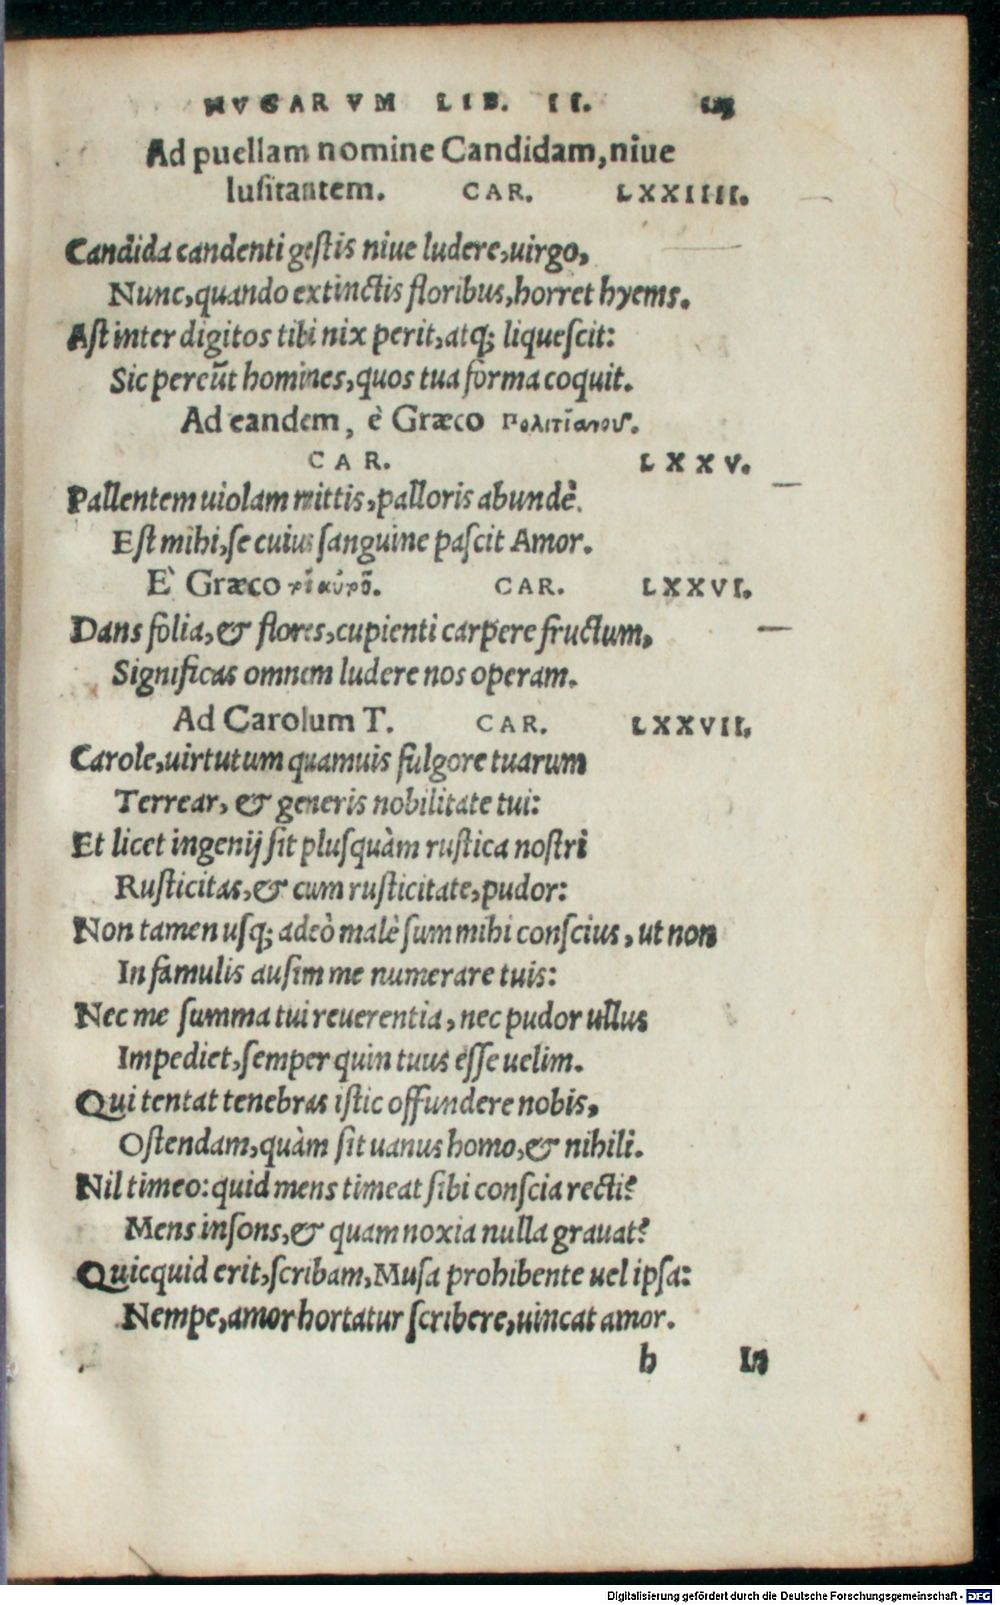 NVGARVM LIB. II.
Ad puellam nomine Candidam, niue
lusitantem. CAR. LXXIIII.
Candida candenti gestis niue ludere, uirgo,
Nunc, quando extinctis floribus, horret hyems.
Ast inter digitos tibi nix perit, atq; liquescit:
Sic pereūt homines, quos tua forma coquit.
Ad eandem, è Græco Πολιτιανοῦ.
CAR. LXXV.
Pallentem uiolam mittis, palloris abundè.
Est mihi, se cuius sanguine pascit Amor.
E' Græco CAR. LXXVI.
Dans folia, & flores, cupienti carpere fructum,
Significas omnem ludere nos operam.
Ad Carolum T. CAR. LXXVII.
Carole, uirtutum quamuis fulgore tuarum
Terrear, & generis nobilitate tui:
Et licet ingenij sit plusquàm rustica nostri
Rusticitas, & cum rusticitate, pudor:
Non tamen usq; adeò malè sum mihi conscius, ut non
In famulis ausim me numerare tuis:
Nec me summa tui reuerentia, nec pudor ullus
Impediet, semper quin tuus esse uelim.
Qui tentat tenebras istic offundere nobis,
Ostendam, quàm sit uanus homo, & nihili.
Nil timeo: quid mens timeat sibi conscia recti?
Mens insons, & quam noxia nulla grauat?
Quicquid erit, scribam, Musa prohibente uel ipsa:
Nempe, amor hortatur scribere, uincat amor.
b In
Digitalisierung gefördert durch die Deutsche Forschungsgemeinschaft - DFG